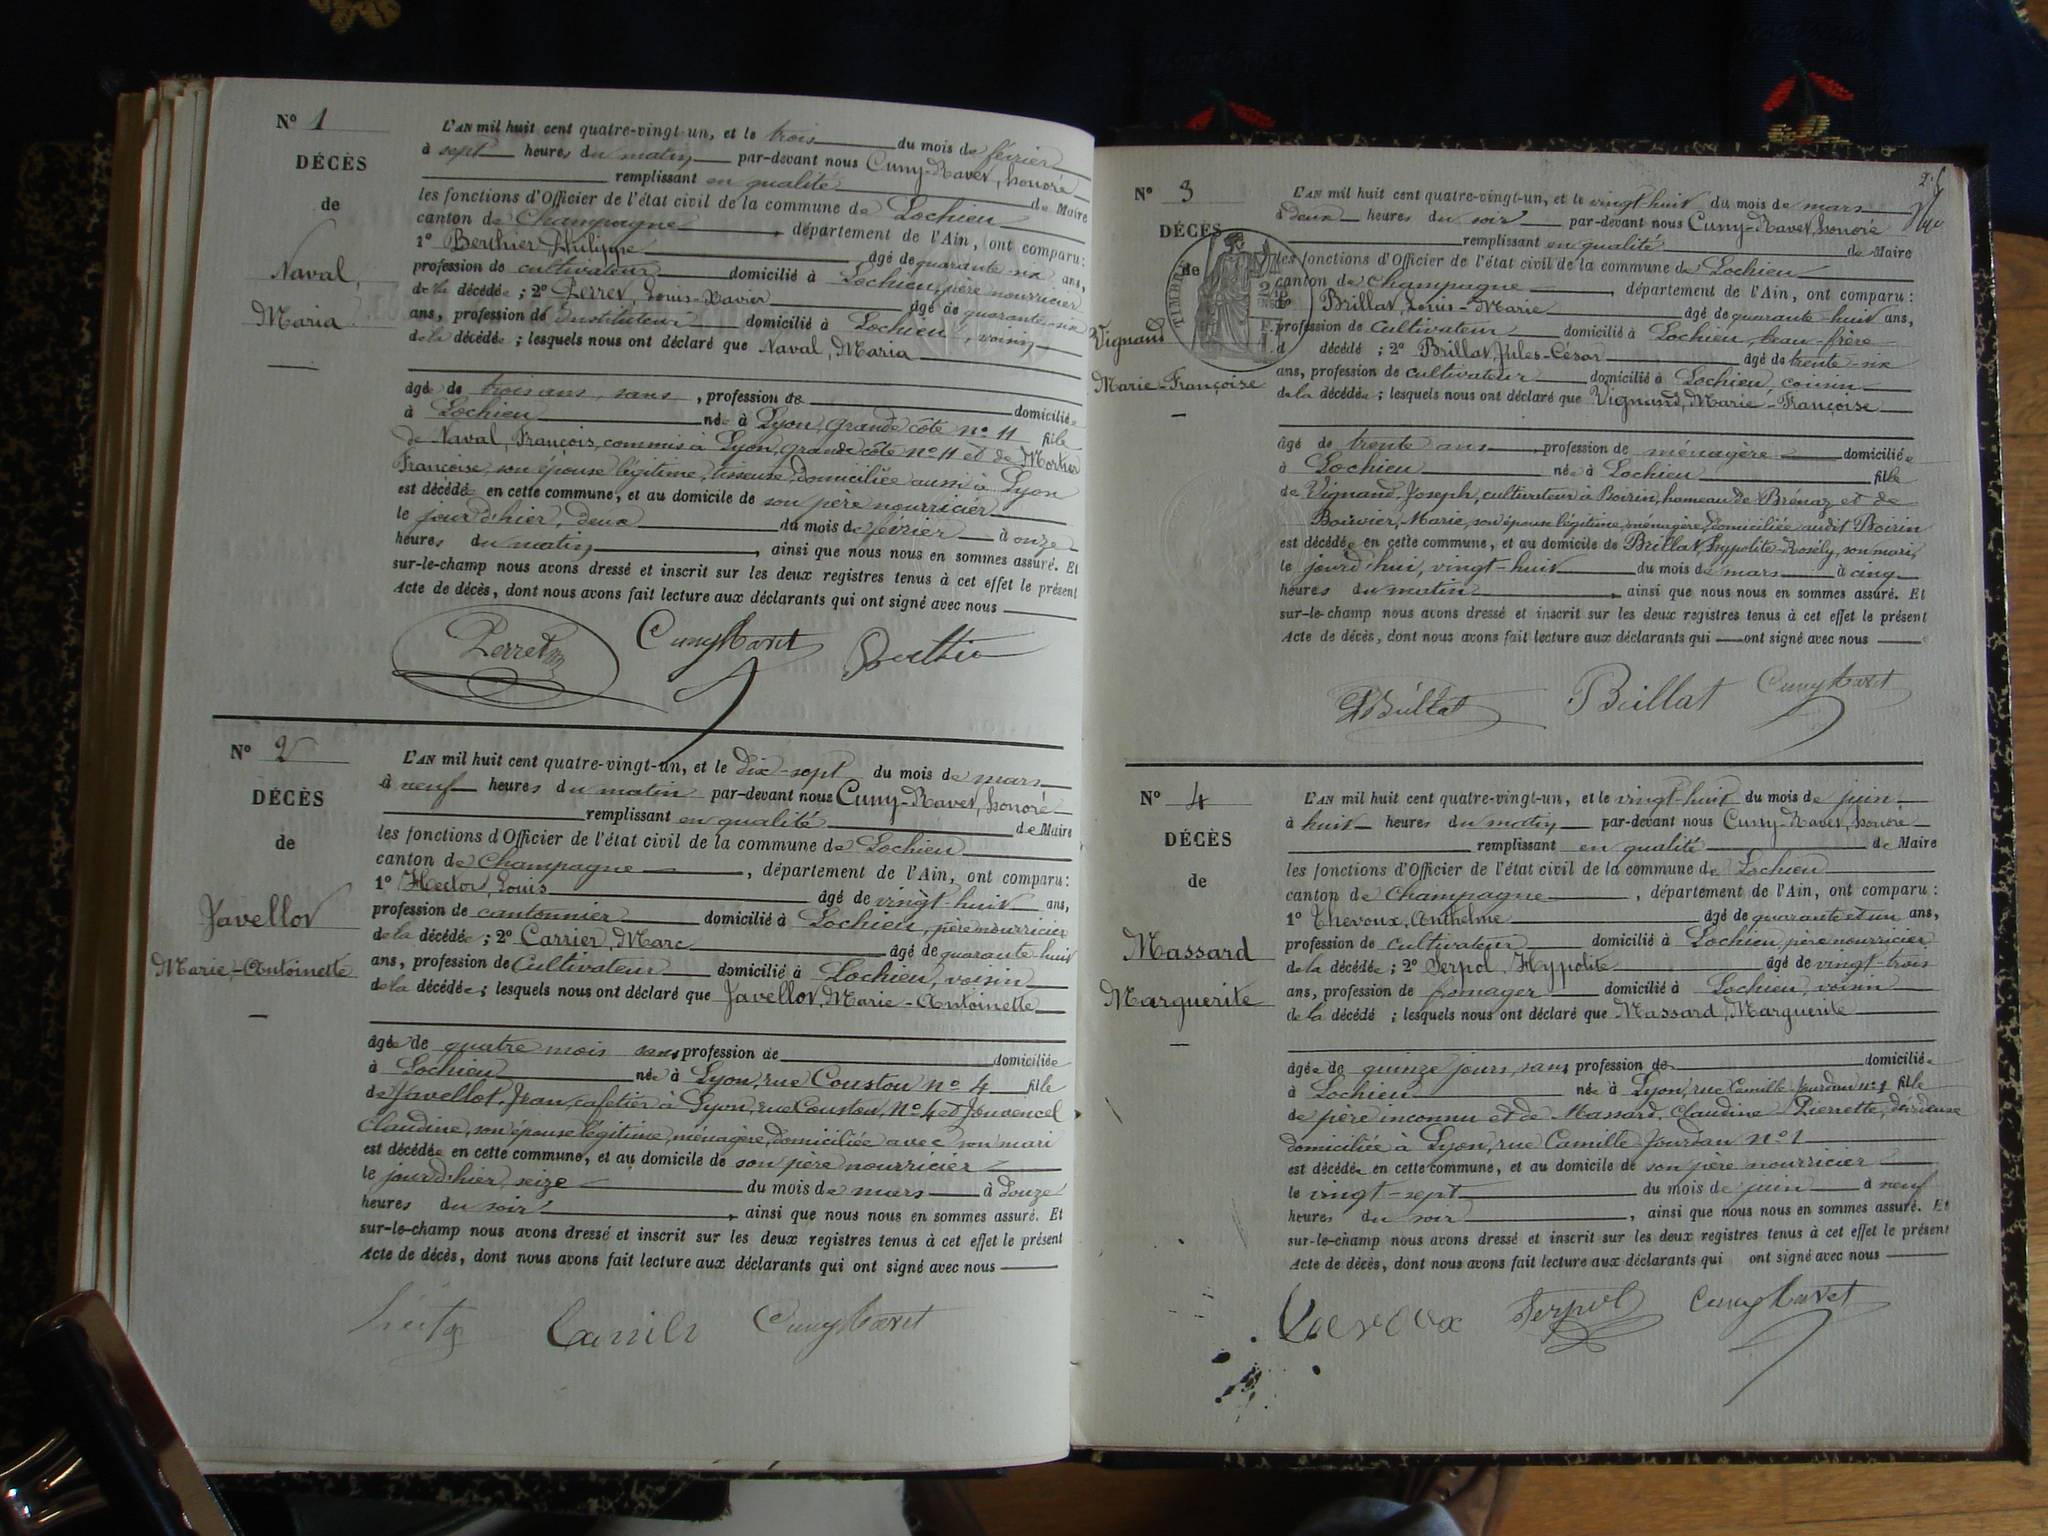 N° 1
DÉCÈS
de
Naval,
Maria
L'AN mil huit cent quatre-vingt un, et le trois du mois de février
à sept heures du matin par-devant nous Cuny-Ravet, honoré
remplissant en qualité de Maire
les fonctions d'Officier de l'état civil de la commune de Lochieu
canton de Champagne, département de l'Ain, ont comparu:
1° Berthier Philippe âgé de quarante-six ans,
profession de cultivateur domicilié à Lochieu, père nourricier
de la décédée; 2° Perret, Louis-Xavier âgé de quarante-six
ans, profession de Instituteur domicilié à Lochieu, voisin
de la décédée; lesquels nous ont déclaré que Naval, Maria
âgé de trois ans, sans, profession de domiciliée
à Lochieu née à Lyon, grande côte n° 11 fille
de Naval, François, commis à Lyon, grande côte n° 11 et de Mortier
Françoise, son épouse légitime, tisseuse, domiciliée aussi à Lyon
est décédée en cette commune, et au domicile de son père nourricier
le jourd'hier, deux du mois de février à onze
heures du matin, ainsi que nous nous en sommes assuré. Et
sur-le-champ nous avons dressé et inscrit sur les deux registres tenus à cet effet le présent
Acte de décès, dont nous avons fait lecture aux déclarants qui ont signé avec nous
Perret Cuny Ravet Berthier
N° 2
DÉCÈS
de
Javellot
Marie-Antoinette
L'AN mil huit cent quatre-vingt-un, et le dix-sept du mois de mars
à neuf heures du matin par-devant nous Cuny-Ravet, honoré
remplissant en qualité de Maire
les fonctions d'Officier de l'état civil de la commune de Lochieu
canton de Champagne, département de l'Ain, ont comparu:
1° Hector, Louis âgé de vingt-huit ans,
profession de cantonnier domicilié à Lochieu, père nourricier
de la décédée; 2° Carrier, Marc âgé de quarante-huit
ans, profession de Cultivateur domicilié à Lochieu, voisin
de la décédée; lesquels nous ont déclaré que Javellot, Marie-Antoinette
âgée de quatre mois sans profession de domiciliée
à Lochieu née à Lyon, rue Coustou n° 4 fille
de Javellot, Jean, cafetier à Lyon, rue Coustou, N° 4 et Jouvencel
Claudine, son épouse légitime, ménagère, domiciliée avec son mari
est décédée en cette commune, et au domicile de son père nourricier
le jourd'hier, seize du mois de mars à douze
heures du soir, ainsi que nous nous en sommes assuré. Et
sur-le-champ nous avons dressé et inscrit sur les deux registres tenus à cet effet le présent
Acte de décès, dont nous avons fait lecture aux déclarants qui ont signé avec nous
Carrier Cuny Ravet
N° 3
DÉCÈS
de
TIMBRE
Vignand
Marie-Françoise
L'AN mil huit cent quatre-vingt-un, et le vingt-huit du mois de mars
à deux heures du soir par-devant nous Cuny-Ravet, honoré
remplissant en qualité de Maire
les fonctions d'Officier de l'état civil de la commune de Lochieu
canton de Champagne, département de l'Ain, ont comparu:
Brillat, Louis-Marie âgé de quarante-huit ans,
profession de Cultivateur domicilié à Lochieu, beau-frère
d décédé; 2° Brillat, Jules-César âgé de trente-six
ans, profession de cultivateur domicilié à Lochieu, cousin
de la décédée; lesquels nous ont déclaré que Vignand, Marie-Françoise
âgé de trente ans profession de ménagère domiciliée
à Lochieu née à Lochieu fille
de Vignand, Joseph, cultivateur à Boirin, hameau de Brénaz et de
Bouvier, Marie, son épouse légitime, ménagère, domiciliée audit Boirin
est décédée en cette commune, et au domicile de Brillat, hypolite-Rosély, son mari,
le jourd'hui, vingt-huit du mois de mars à cinq
heures du matin, ainsi que nous nous en sommes assuré. Et
sur-le-champ nous avons dressé et inscrit sur les deux registres tenus à cet effet le présent
Acte de décès, dont nous avons fait lecture aux déclarants qui ont signé avec nous
Brillat Brillat Cuny Ravet
N° 4
DÉCÈS
de
Massard
Marguerite
L'AN mil huit cent quatre-vingt-un, et le vingt-huit du mois de juin
à huit heures du matin par-devant nous Cuny-Ravet, honoré
remplissant en qualité de Maire
les fonctions d'Officier de l'état civil de la commune de Lochieu
canton de Champagne, département de l'Ain, ont comparu:
1° Thevoux, Anthelme âgé de quarante et un ans,
profession de cultivateur domicilié à Lochieu, père nourricier
de la décédée; 2° Serpol, Hyppolite âgé de vingt-trois
ans, profession de fromager domicilié à Lochieu, voisin
de la décédé; lesquels nous ont déclaré que Massard, Marguerite
âgée de quinze jours, sans profession de domiciliée
à Lochieu née à Lyon, rue Camille Jourdan n° 1 fille
de père inconnu et de Massard, Claudine-Pierrette, dévideuse
domiciliée à Lyon, rue Camille Jourdan N° 1
est décédée en cette commune, et au domicile de son père nourricier
le vingt-sept du mois de juin à neuf
heures du soir, ainsi que nous nous en sommes assuré. Et
sur-le-champ nous avons dressé et inscrit sur les deux registres tenus à cet effet le présent
Acte de décès, dont nous avons fait lecture aux déclarants qui ont signé avec nous
Serpol Cuny Ravet